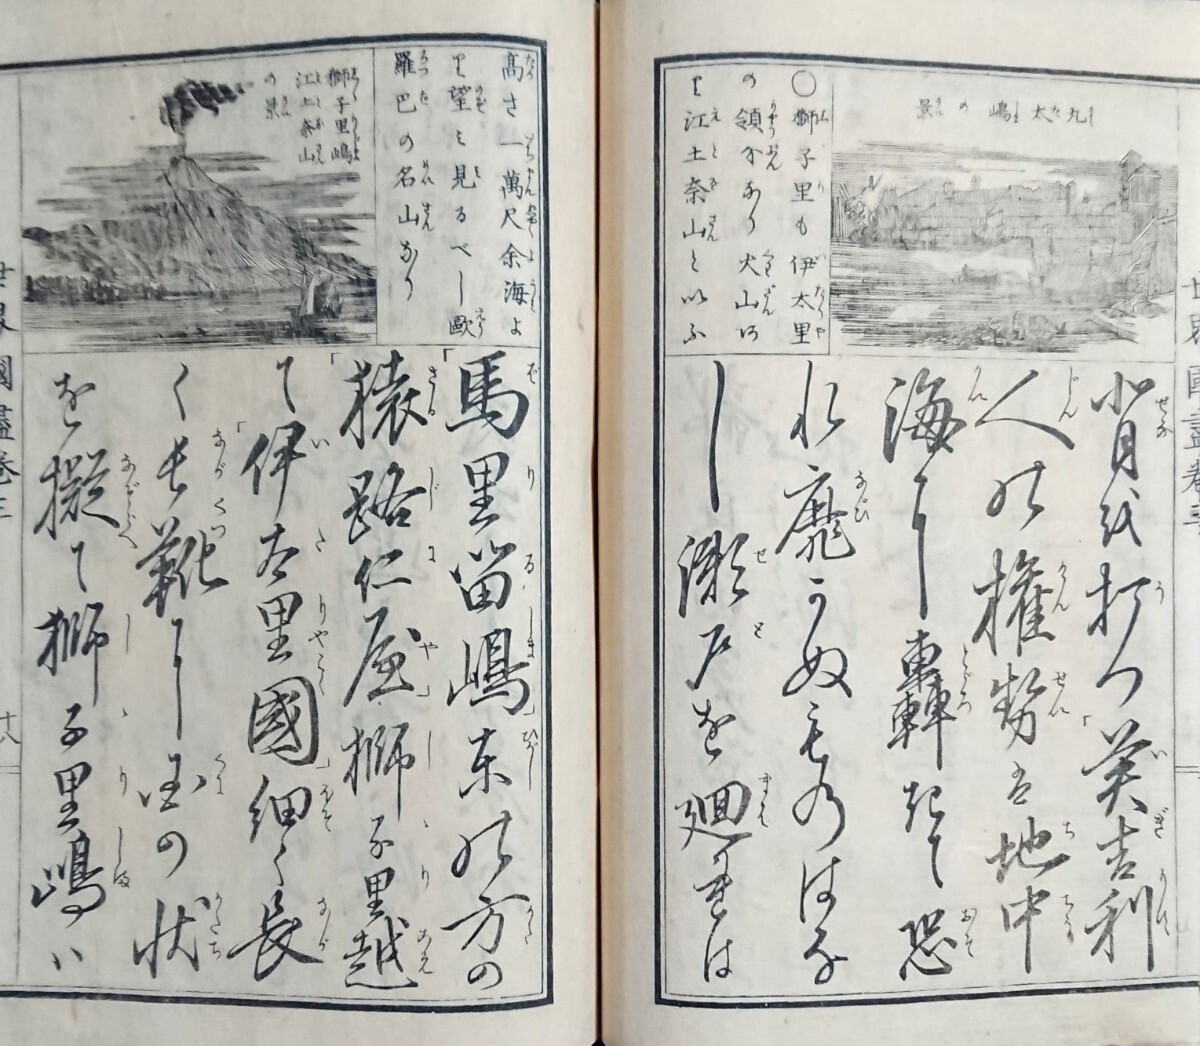 世界國盡卷三
丸太嶋の景
○獅子里も伊太里
の領分なり火山阿
り江土奈山と以ふ
背越打つ英吉利
人の權勢は地中
海に轟起て恐
れ靡かぬものはな
し瀬戸を廻れは
高さ一萬尺余海よ
り望み見るべし歐
羅巴の名山なり
獅子里嶋
江土奈山
の景
「馬里留嶋」東の方の
「猿路仁屋」獅子里越
て「伊太里國」細く長
く長靴に國の状
を擬て獅子里嶋ハ
世界國盡卷三
十八